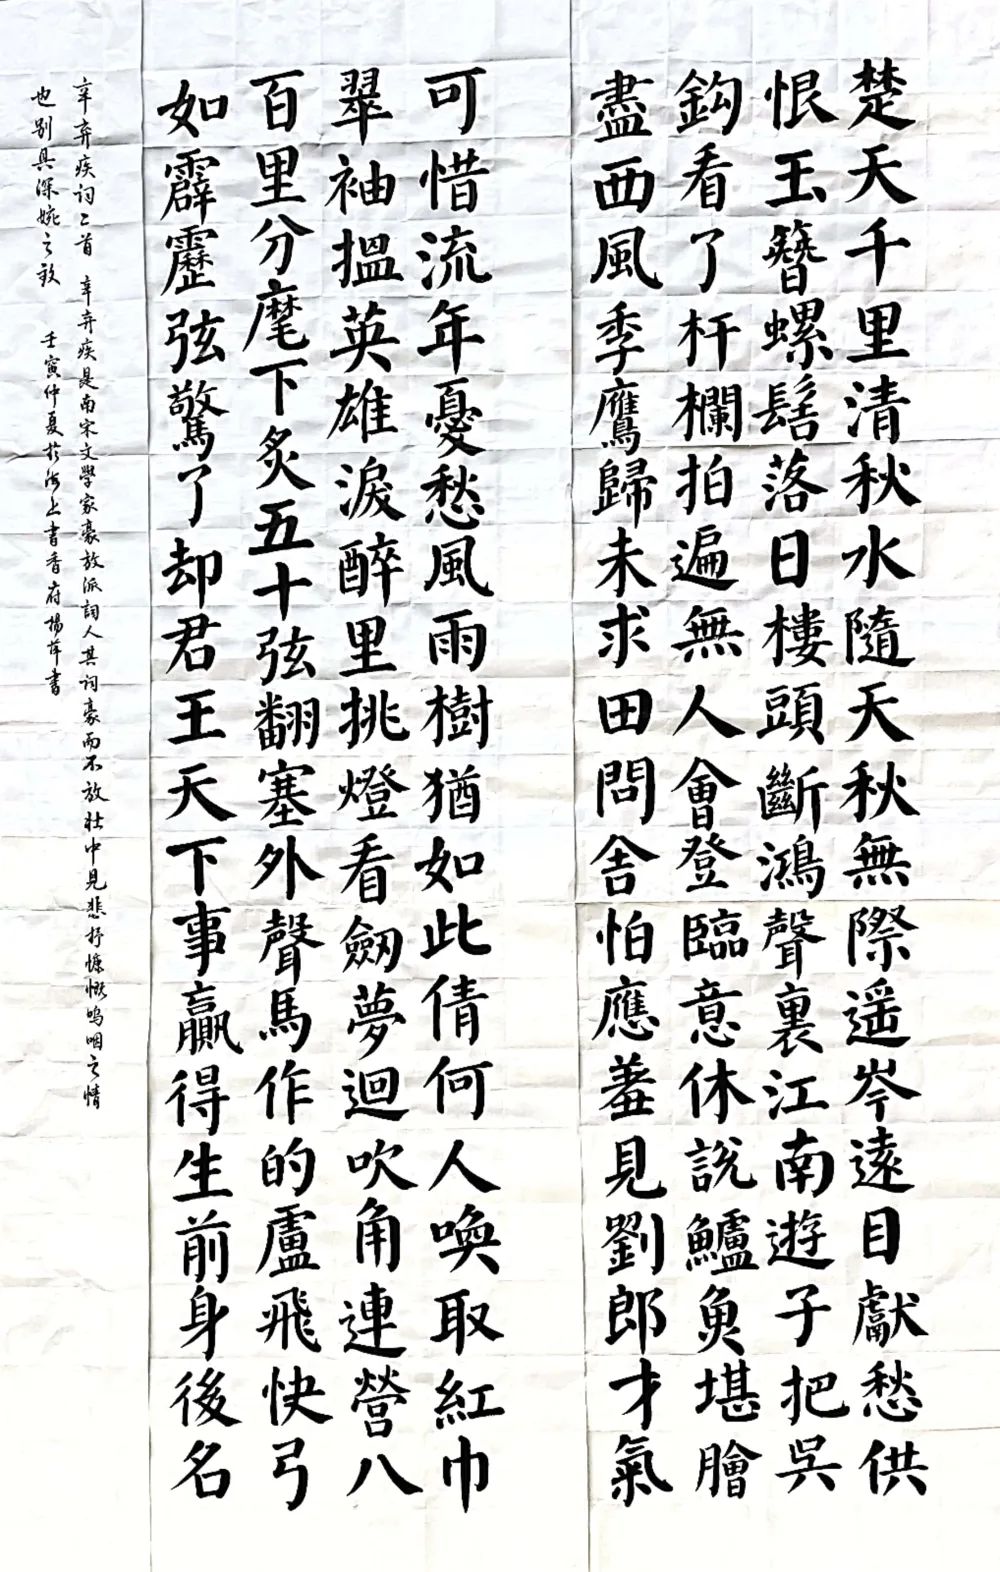 楚天千里清秋水隨天秋無際遥岑遠目獻愁供
恨玉簪螺髻落日樓頭斷鴻聲裏江南遊子把吳
鈎看了杆欄拍遍無人會登臨意休說鱸魚堪膾
盡西風季鷹歸未求田問舍怕應羞見劉郎才氣
可惜流年憂愁風雨樹猶如此倩何人喚取紅巾
翠袖搵英雄淚醉里挑燈看劒夢迴吹角連營八
百里分麾下炙五十弦翻塞外聲馬作的盧飛快弓
如霹靂弦驚了却君王天下事贏得生前身後名
辛弃疾词二首 辛弃疾是南宋文學家豪放派詞人其词豪而不放壮中見悲抒慷慨嗚咽之情
也别具深婉之致 壬寅仲夏於海上書香府楊萍書